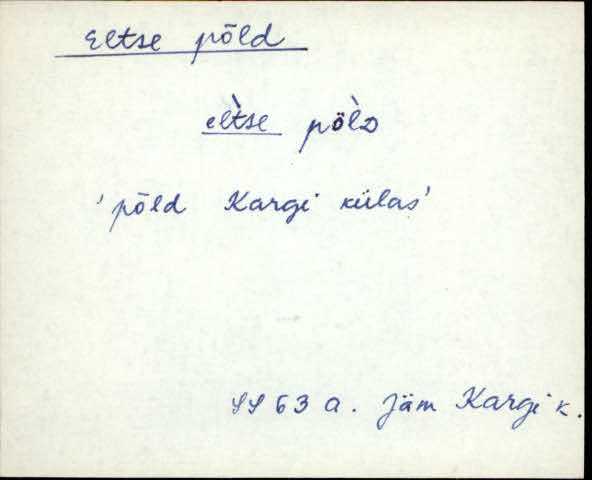 Eltse põld
èltse pöl̀D
'põld Kargi külas'
SS 63 a. Jäm Kargi k.